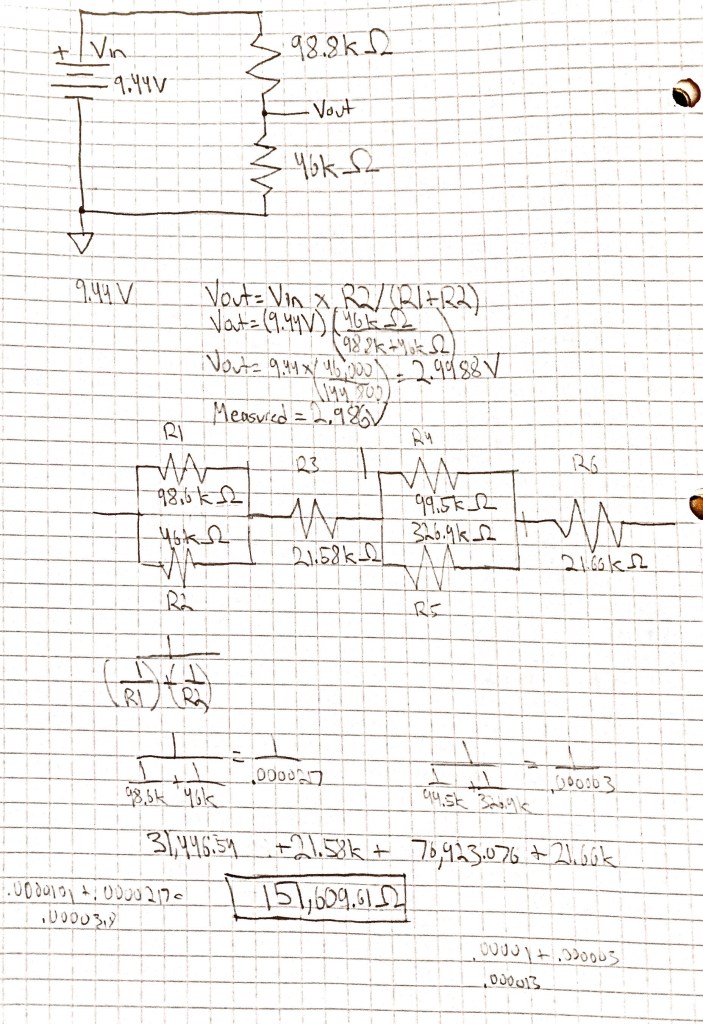 + Vin
9.44V
98.8kΩ
Vout
46kΩ
9.44V
Vout = Vin x R2/(R1+R2)
Vout = (9.44V) (46kΩ / 98.8k+46kΩ)
Vout = 9.44 x (46,000 / 144,800) = 2.9988V
Measured = 2.986V
R1
R3
R4
R6
98.6kΩ
99.5kΩ
46kΩ
326.9kΩ
21.58kΩ
21.66kΩ
R2
R5
1
(1/R1) + (1/R2)
1 / (1/98.6k + 1/46k) = 1/.000027
1 / (1/99.5k + 1/326.9k) = 1/.000003
31,446.54 + 21.58k + 76,923.076 + 21.66k
.0000101 + .0000217=
151,609.61Ω
.00001 + .000003
.000013